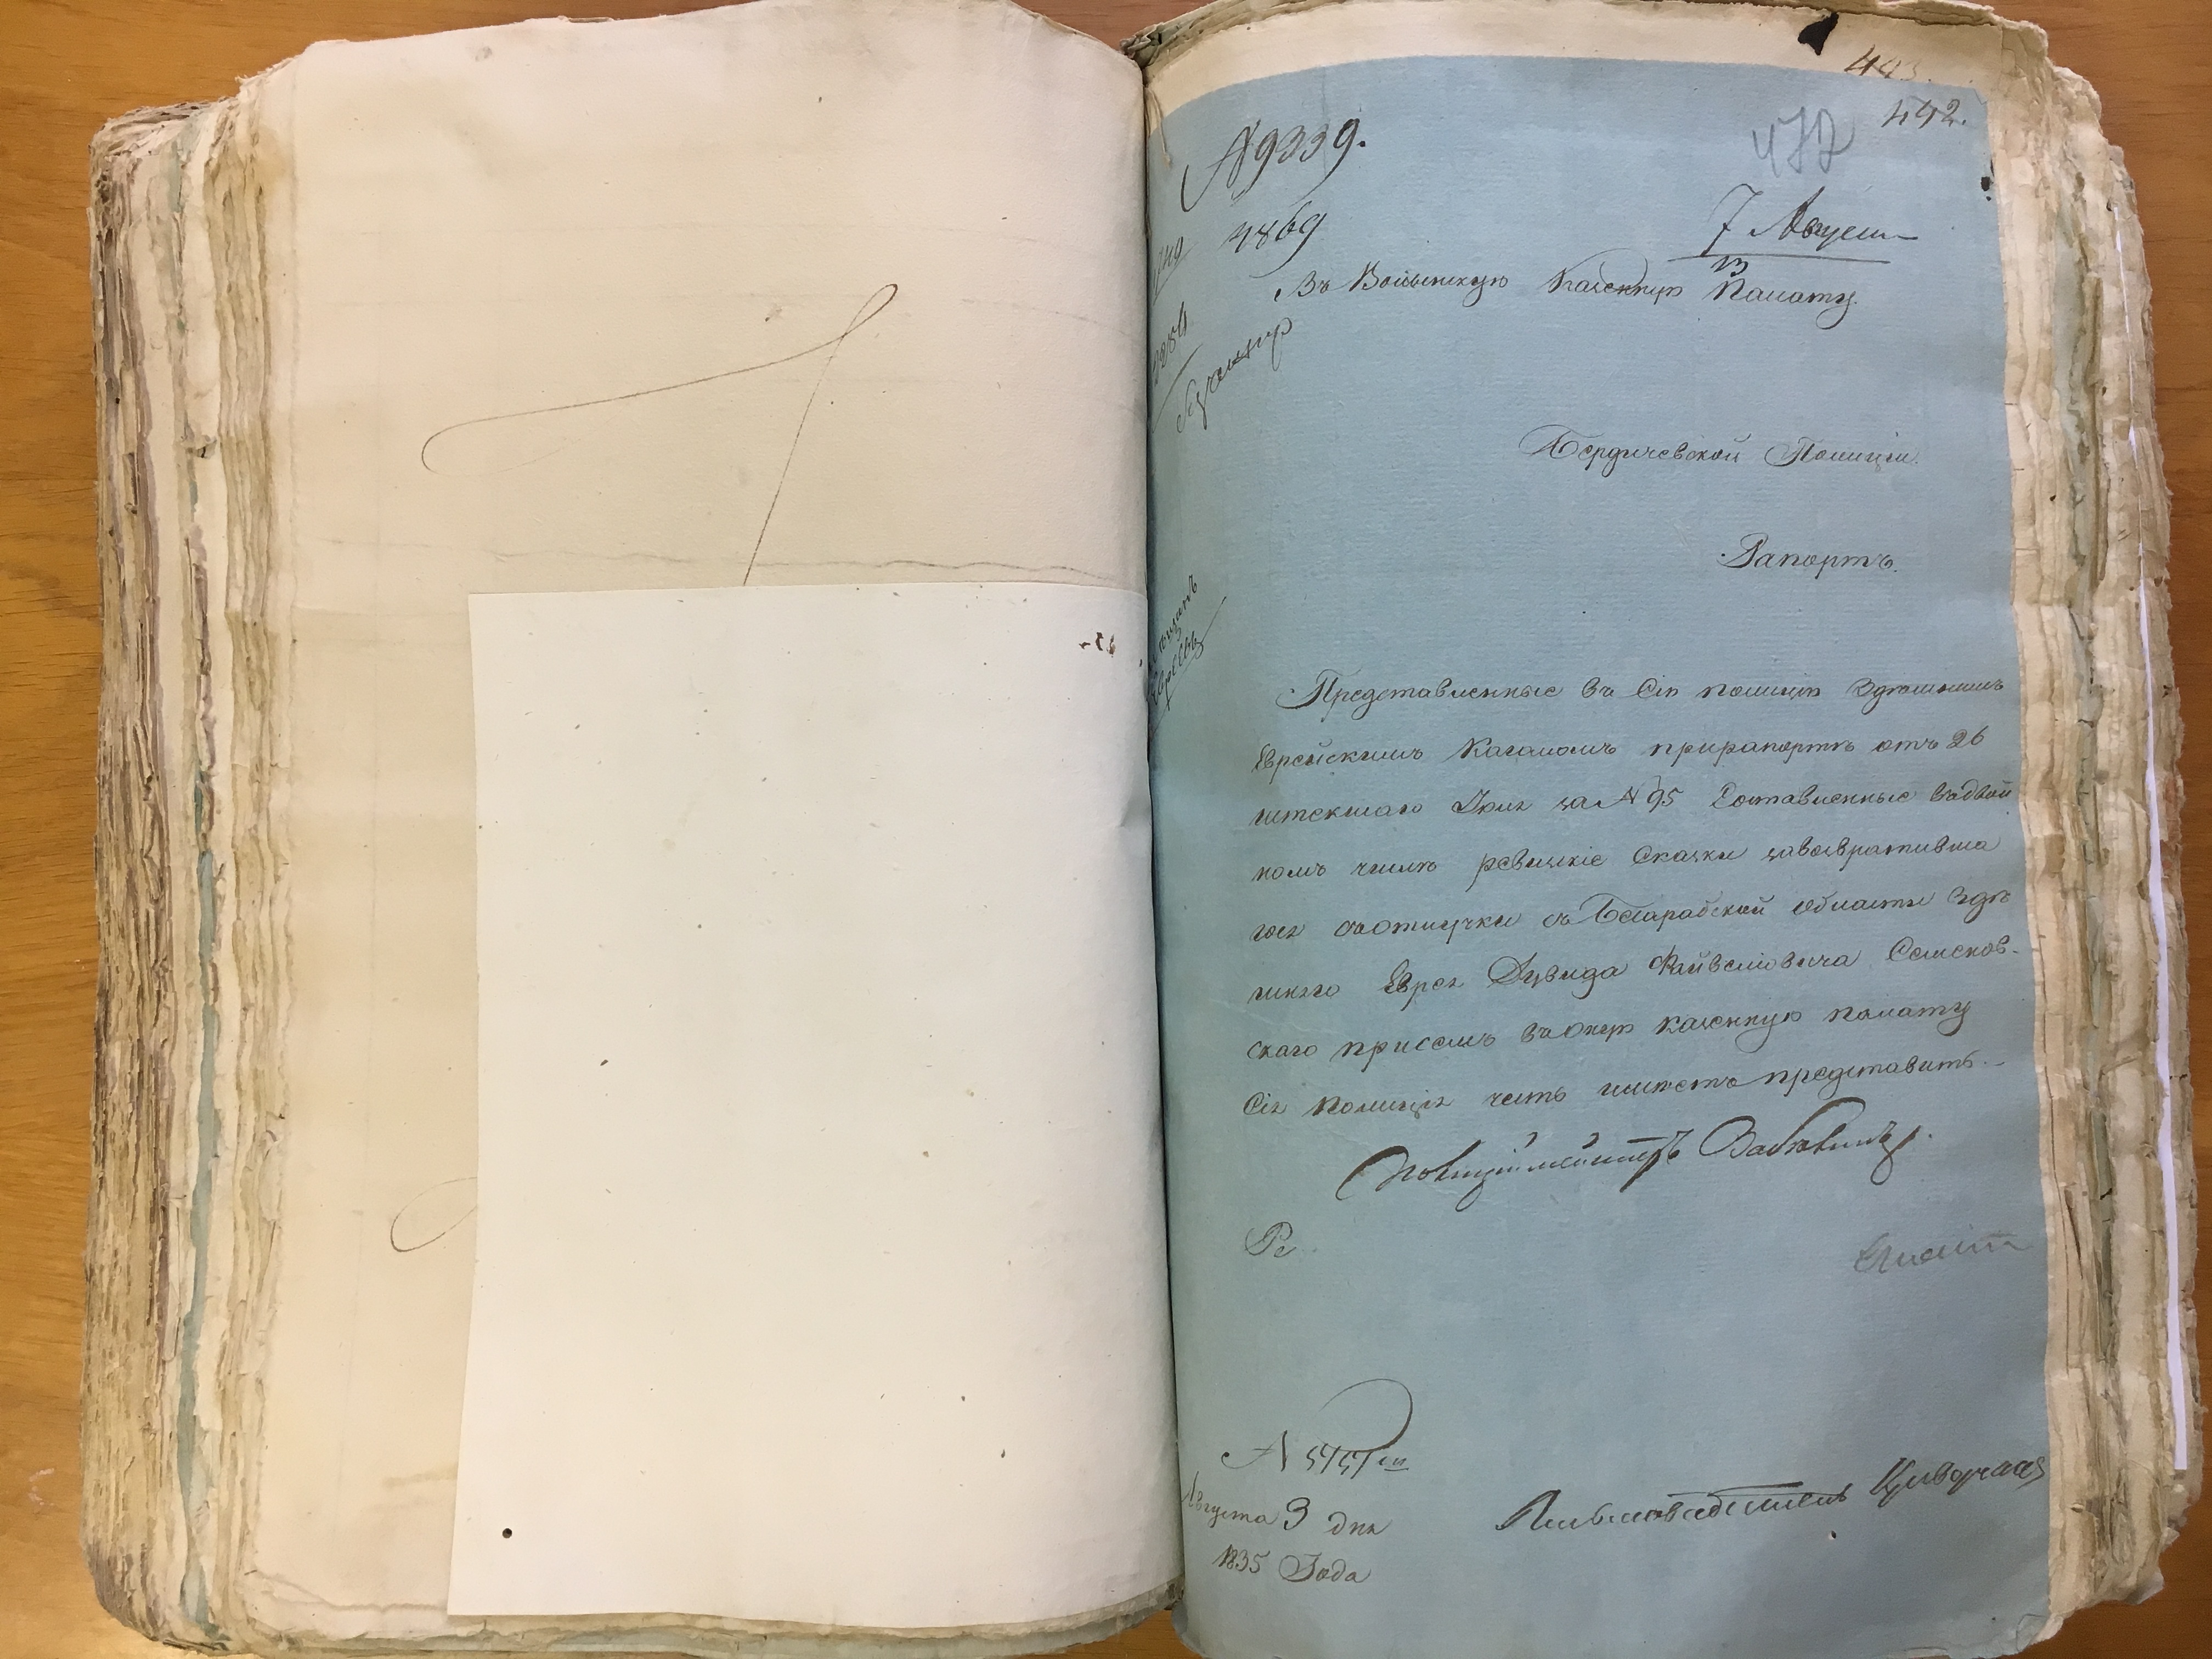 443.
442.
472
№ 9339.
4869
7 Август
13
Въ Волынскую Казенную Палату.
2284
Бердичевской Полиціи.
Рапортъ.
Представленные въ Сію полицію Здешнимъ
Еврейскимъ Кагаломъ прирапортѣ отъ 26
истекшаго Іюля за № 95 Составленные вадвой
номъ числѣ ревизкіе Сказки завозвратившa
гося сотлучки съ Бесарабской области здѣ
шняго Еврея Дувида Файвеліовича Семенов-
скаго присемъ въоную казенную палату
Сія Полиція честь имѣетъ представить.
Полицiймейстеръ
Ре
№
Августа 3 дня
1835 Года
Письмоводитель